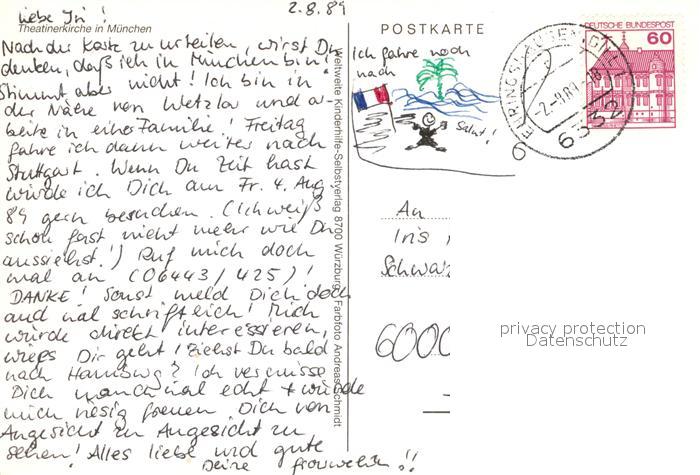 2.8.89
Liebe Iri!
Theatinerkirche in München
Nach der Karte zu urteilen, wirst Du
denken, daß ich in München bin!
Stimmt aber nicht! Ich bin in
der Nähe von Wetzlar und ar-
beite in einer Familie! Freitag
fahre ich dann weiter nach
Stuttgart. Wenn Du Zeit hast
würde ich Dich am Fr. 4. Aug
89 gern besuchen. (Ich weiß
schon fast nicht mehr wie Du
aussiehst!) Ruf mich doch
mal an (06443/425)!
DANKE! Sonst meld Dich doch
auch mal schriftlich! Mich
würde direkt interessieren,
wie's Dir geht! Ziehst Du bald
nach Hamburg? Ich vermisse
Dich manchmal echt + würde
mich riesig freuen Dich von
Angesicht zu Angesicht zu
sehen! Alles liebe und gute
Deine !!
Weltweite Kinderhilfe-Selbstverlag 8700 Würzburg, Farbfoto Andreas Schmidt
POSTKARTE
Ich fahre noch
nach
Salut!
DEUTSCHE BUNDESPOST
60
EHRINGSHAUSEN
-2.-8.89-18
6332
An
Iris
Schwarz
6000
privacy protection
Datenschutz